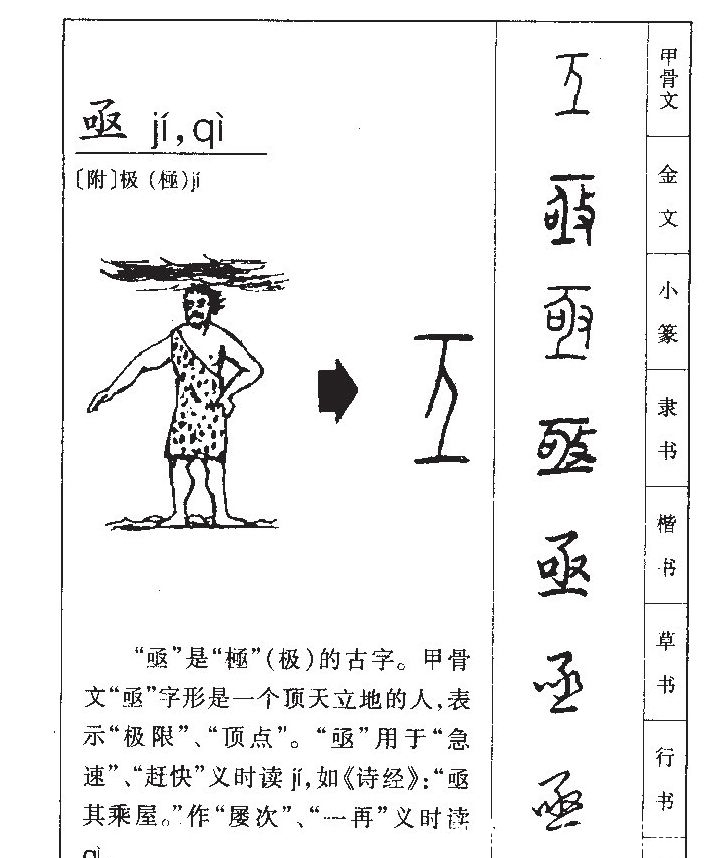 亟 jí,qì
〔附〕极(極)jí
“亟”是“極”(极)的古字。甲骨
文“亟”字形是一个顶天立地的人,表
示“极限”、“顶点”。“亟”用于“急
速”、“赶快”义时读 jí,如《诗经》:“亟
其乘屋。”作“屡次”、“一再”义时读
qì
甲骨文
金文
小篆
隶书
楷书
亟
草书
亟
行书
亟